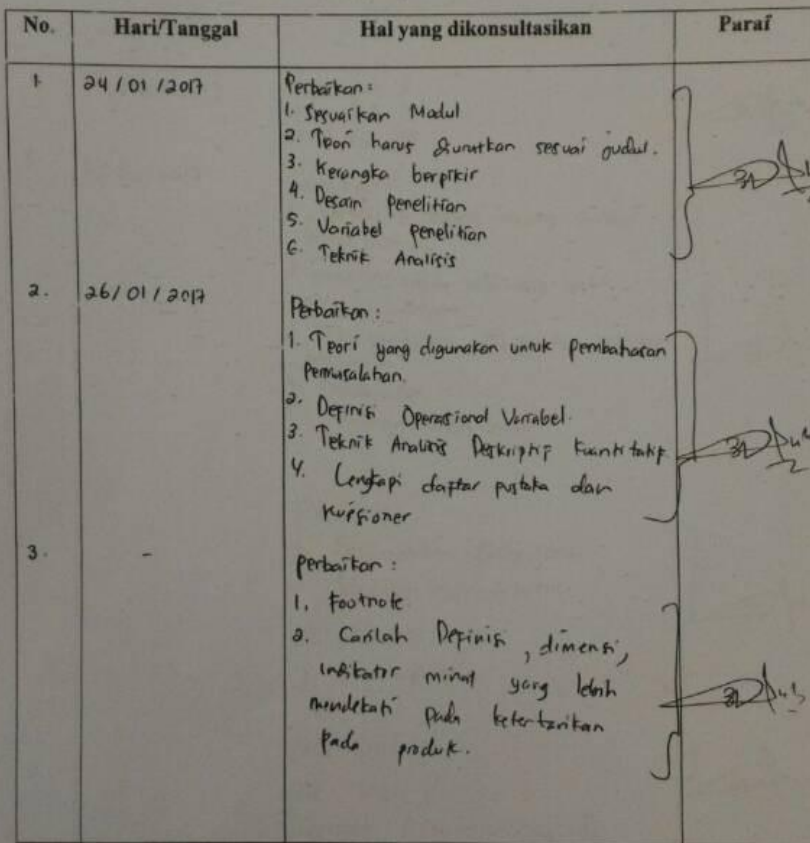 No. Hari/Tanggal Hal yang dikonsultasikan Paraf
1. 24/01/2017 Perbaikan:
1. Sesuaikan Modul
2. Teori harus diurutkan sesuai judul.
3. Kerangka berpikir
4. Desain penelitian
5. Variabel penelitian
6. Teknik Analisis
2. 26/01/2017 Perbaikan:
1. Teori yang digunakan untuk pembahasan
permasalahan.
2. Definisi Operasional Variabel.
3. Teknik Analisis Deskriptif Kuantitatif.
4. Lengkapi daftar pustaka dan
kuesioner
3. - perbaikan:
1. Footnote
2. Carilah Definisi, dimensi,
indikator minat yang lebih
mendekati pada ketertarikan
pada produk.